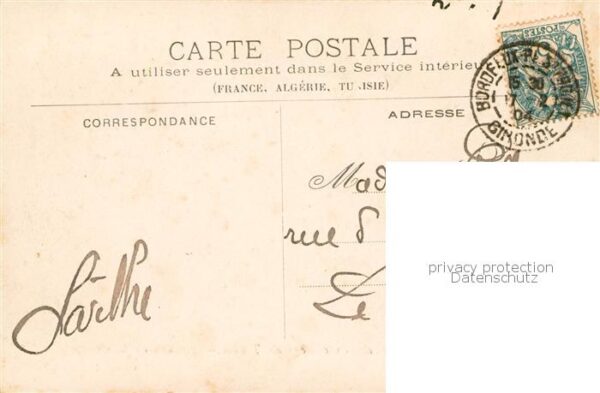 CARTE POSTALE
A utiliser seulement dans le Service intérieu
(FRANCE, ALGÉRIE, TU ISIE)
CORRESPONDANCE
ADRESSE
BORDEAUX
GIRONDE
04
POSTES
Mad
rue d
Le
Sarthe
privacy protection
Datenschutz